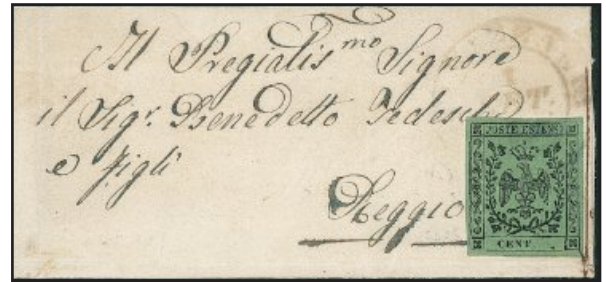 Al Pregialis^mo Signore
il Sig^r. Benedetto Tedeschi
e figli
Reggio
POSTE ESTENSI
CENT.